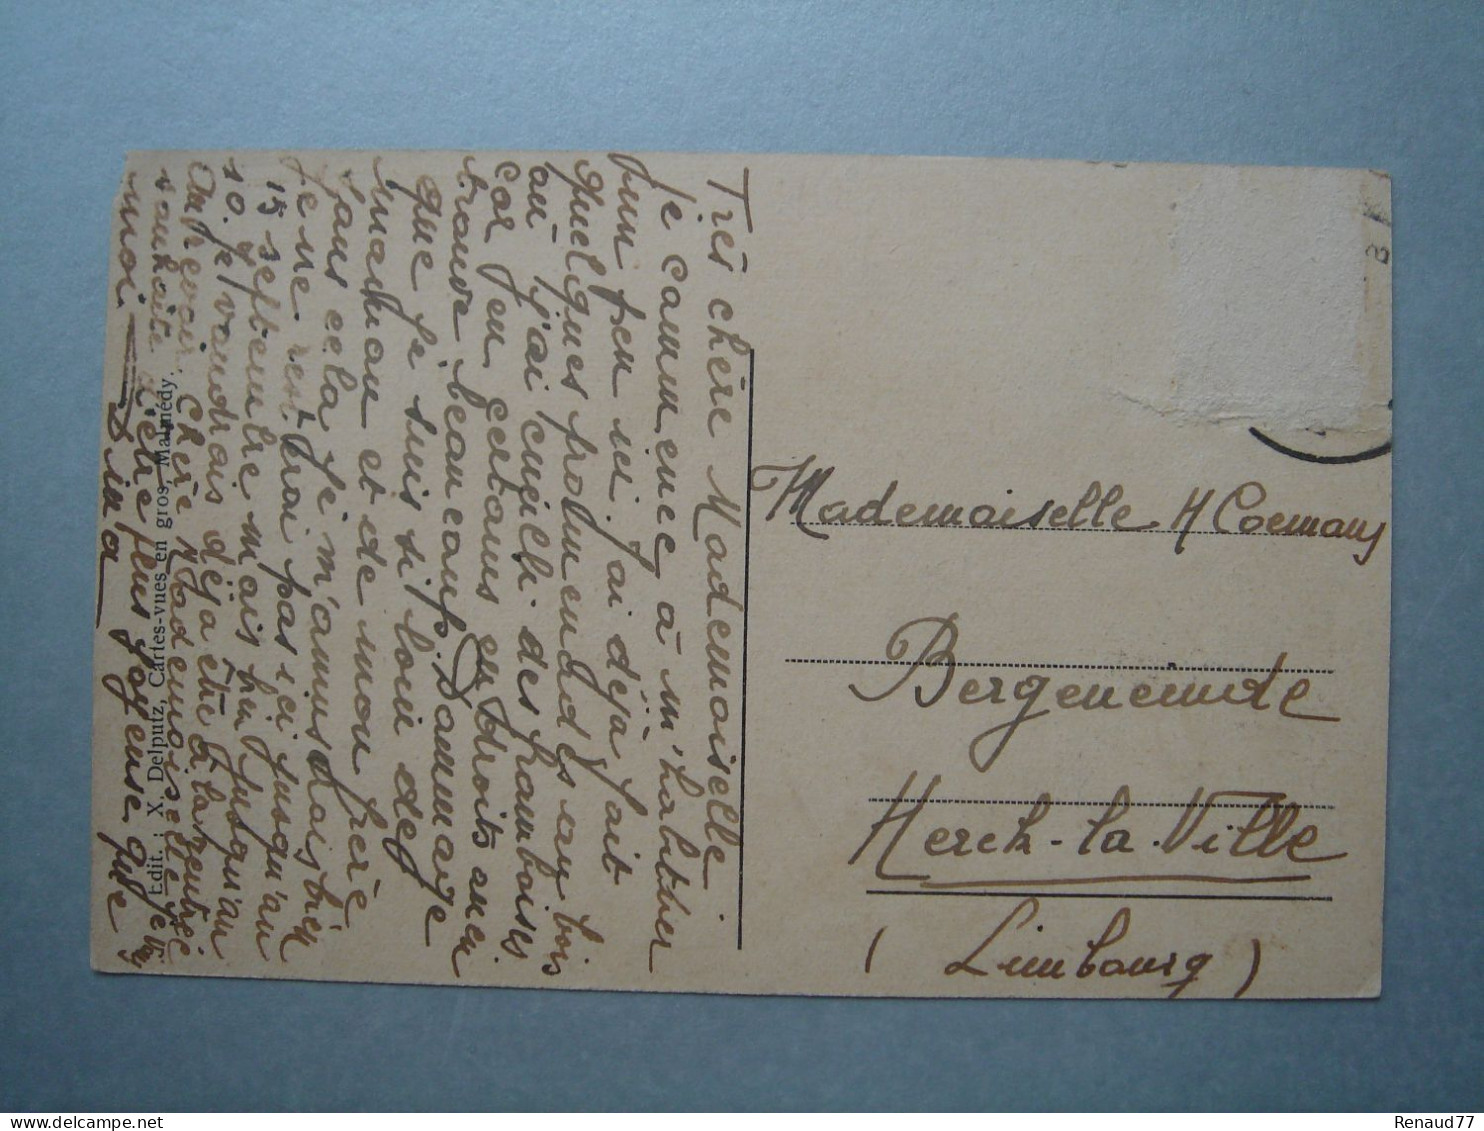 Très chère Mademoiselle
Je commence à m'habituer
un peu ici. J'ai déjà fait
quelques promenades au bois
où j'ai cueilli des framboises
car j'en
trouve beaucoup. Dommage
que je suis si loin de
maman et de mon frère
sans cela je m'amuserais bien
Je ne resterai pas ici jusqu'au
15 septembre mais bien jusqu'au
10. Je voudrais déjà être à la rentrée
Au revoir, Chère Mademoiselle
souhaite
moi
Edit. : X. Delputz, Cartes-vues en gros, Malmédy.
Mademoiselle H Coemans
Bergeneinde
Herck-la-Ville
(Limbourg)
B
Renaud77